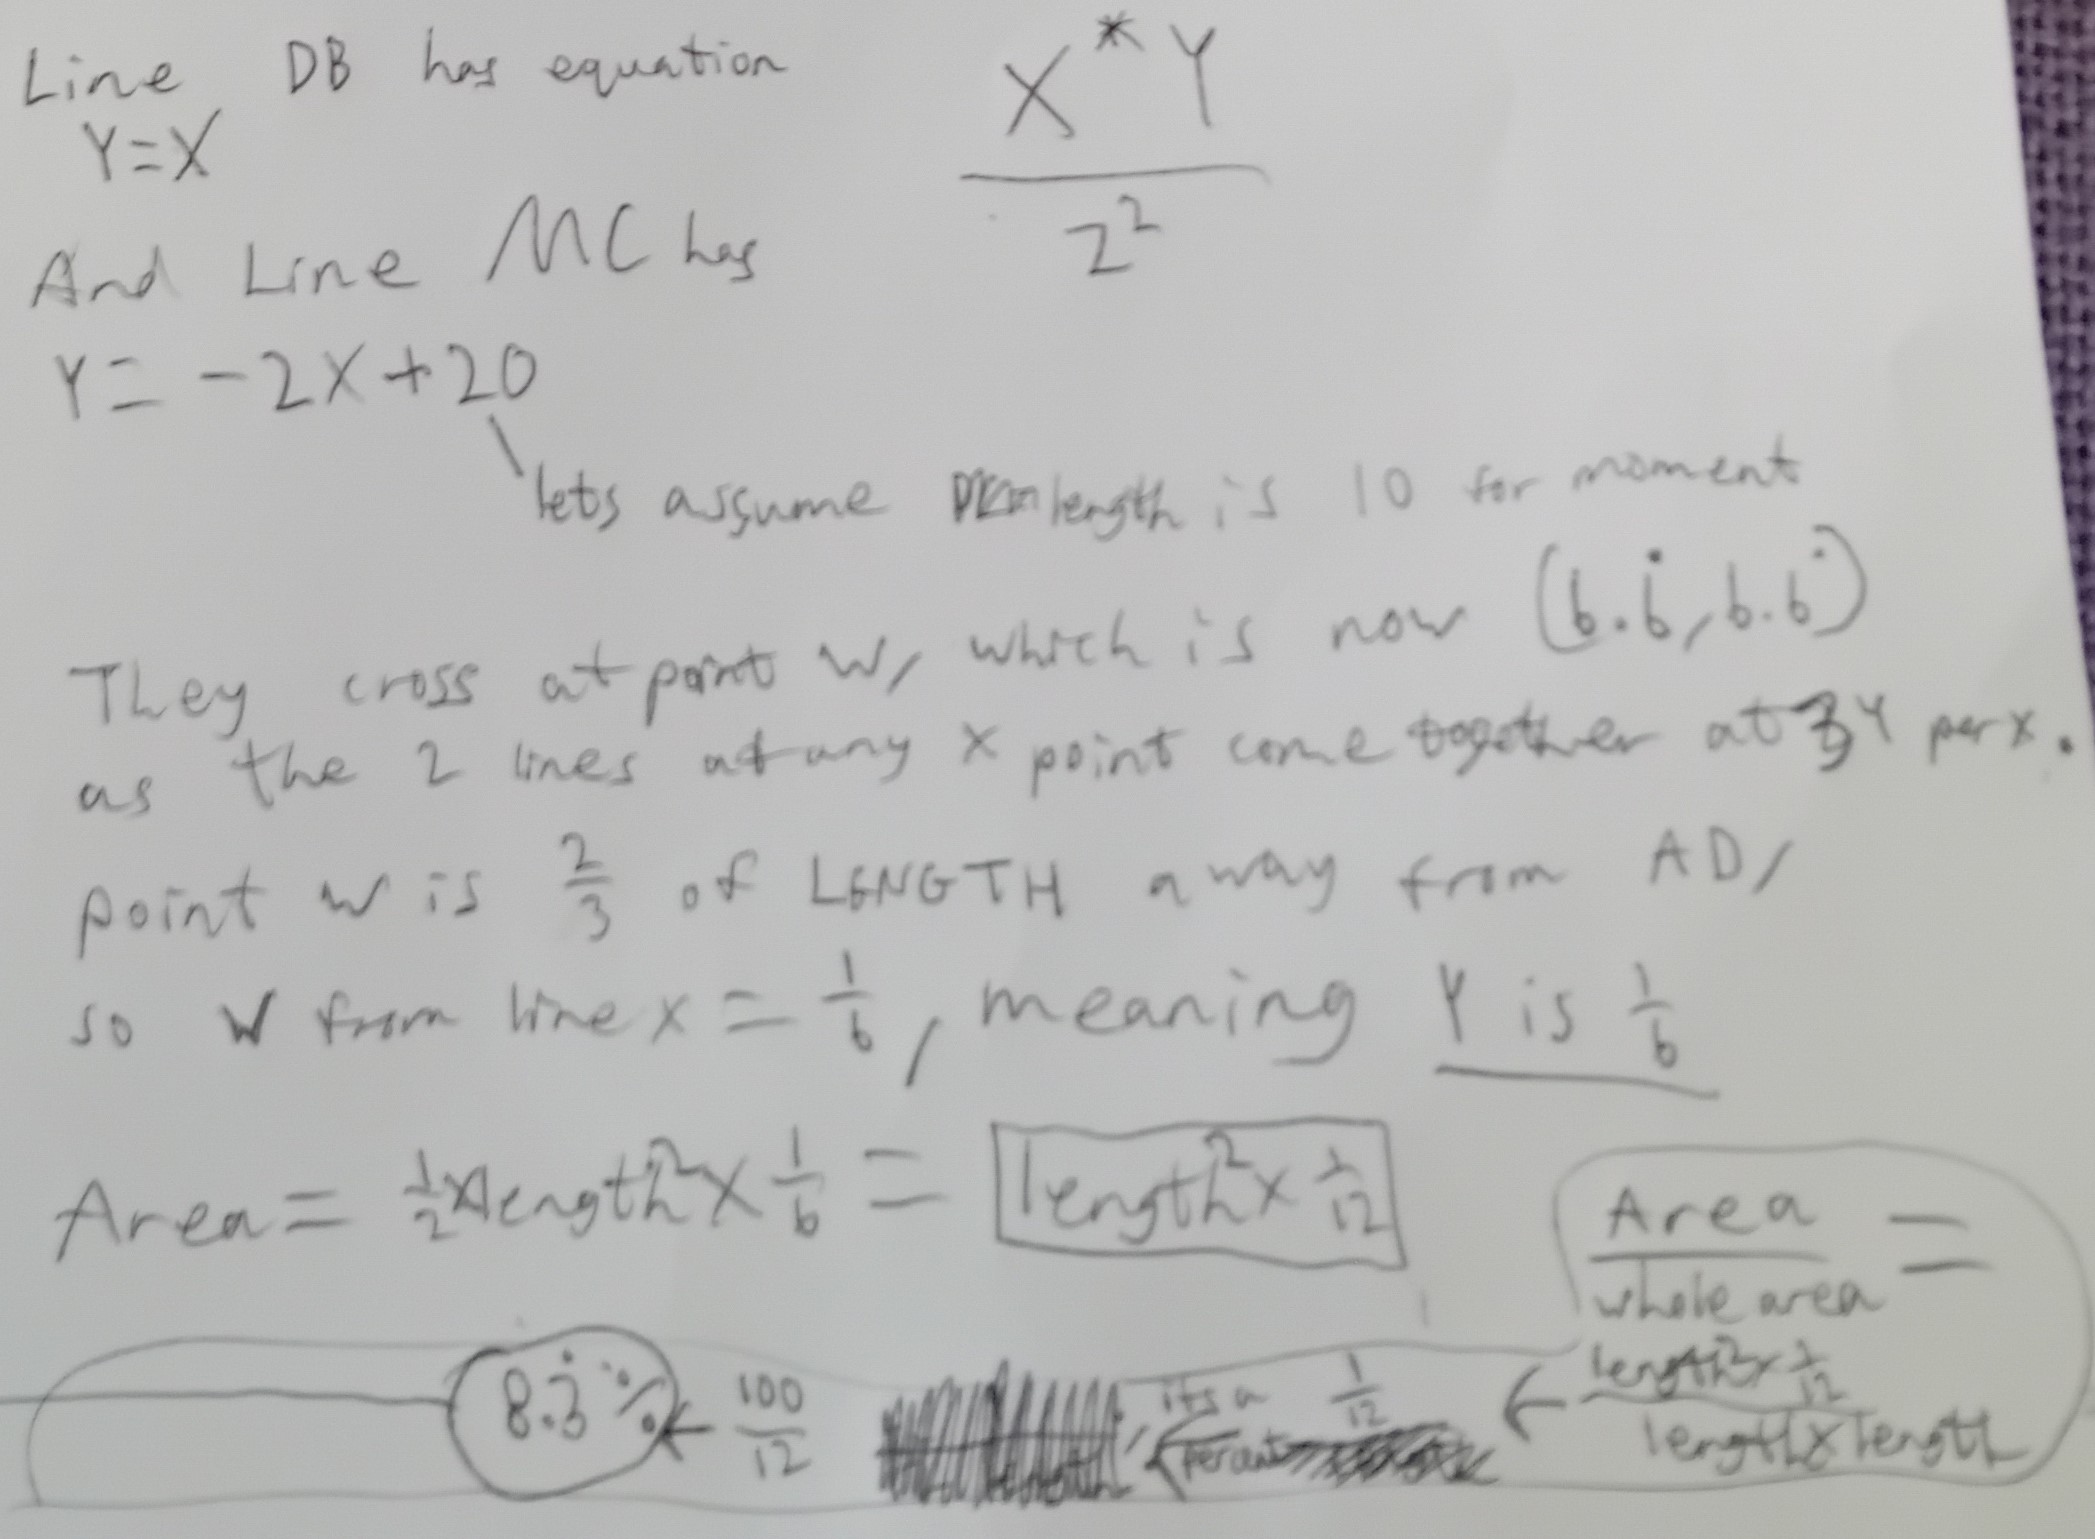 Line DB has equation
Y=X
X*Y
2²
And Line MC has
Y= -2X+20
lets assume length is 10 for moment
They cross at point W, which is now (6.6̇, 6.6̇)
as the 2 lines at any x point come together at 3Y per x.
point W is 2/3 of LENGTH away from AD,
so W from line x = 1/6, meaning Y is 1/6
Area = 1/2 x length² x 1/6 = length² x 1/12
Area
whole area
=
length² x 1/12
length x length
← 1/12
its a
percent
100/12
← 8.3̇%